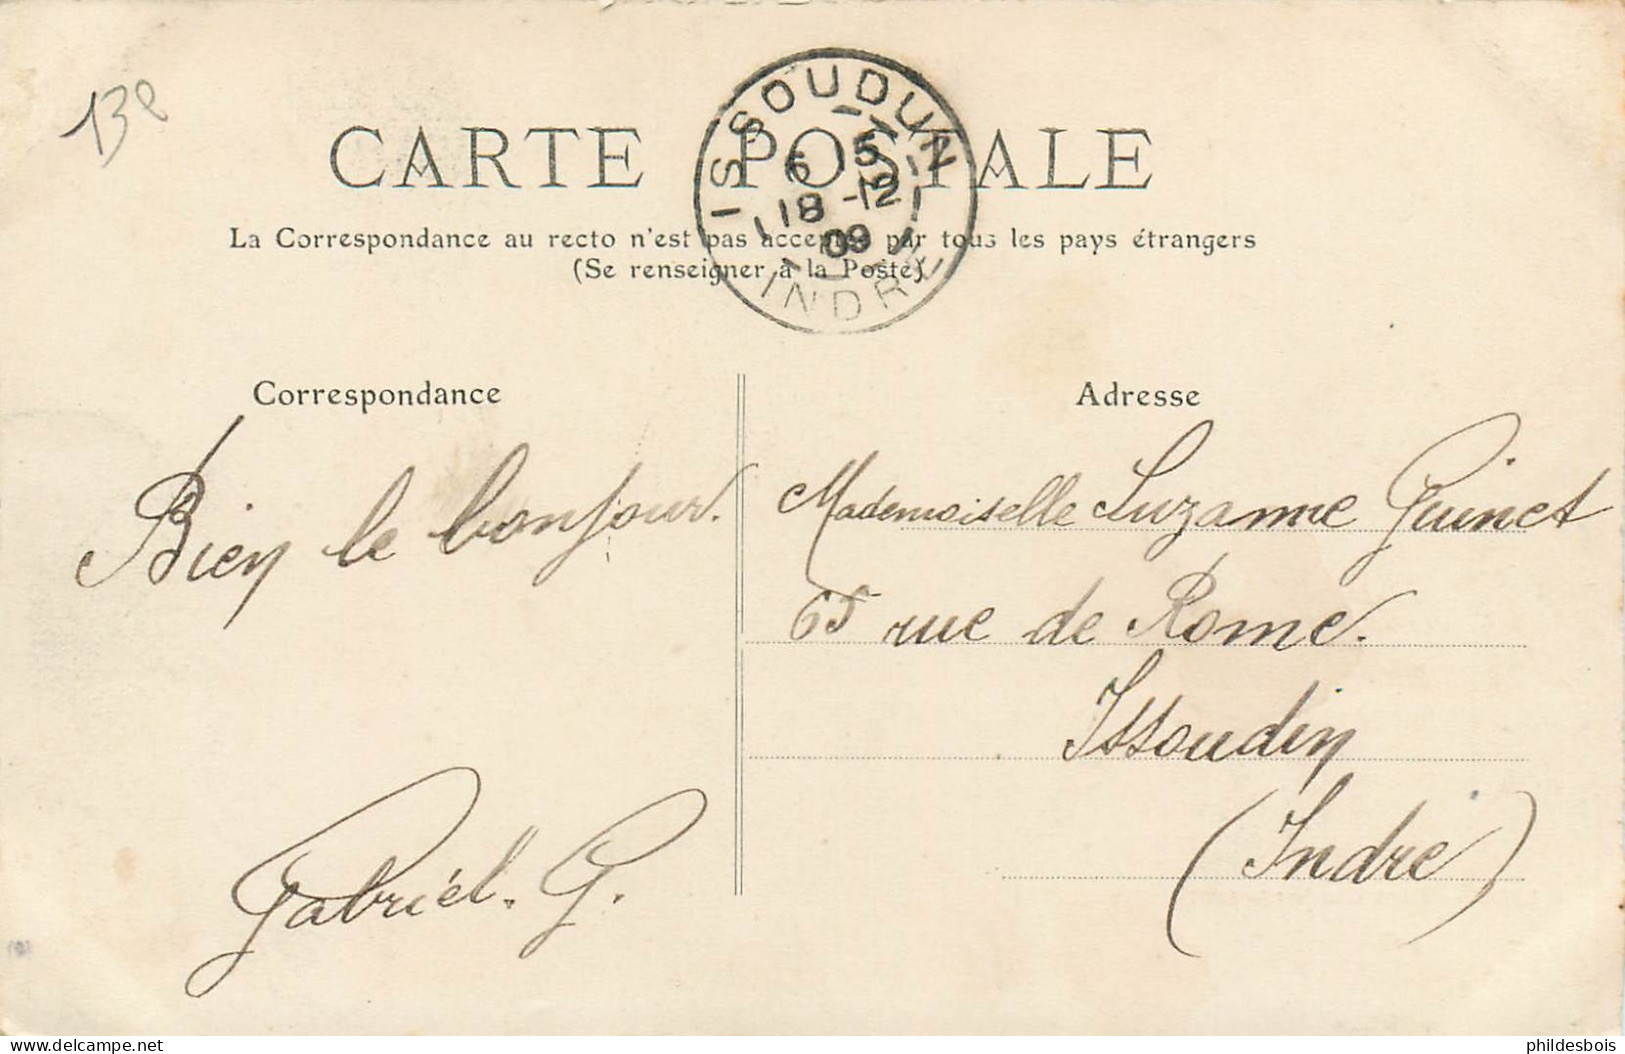 138
CARTE POSTALE
ISSOUDUN
6 15
18 -12
09
INDRE
La Correspondance au recto n'est pas acceptée par tous les pays étrangers
(Se renseigner à la Poste)
Correspondance
Bien le bonjour.
Gabriel. G.
Adresse
Mademoiselle Suzanne Guinet
65 rue de Rome.
Issoudun
(Indre)
delcampe.net
phildesbois